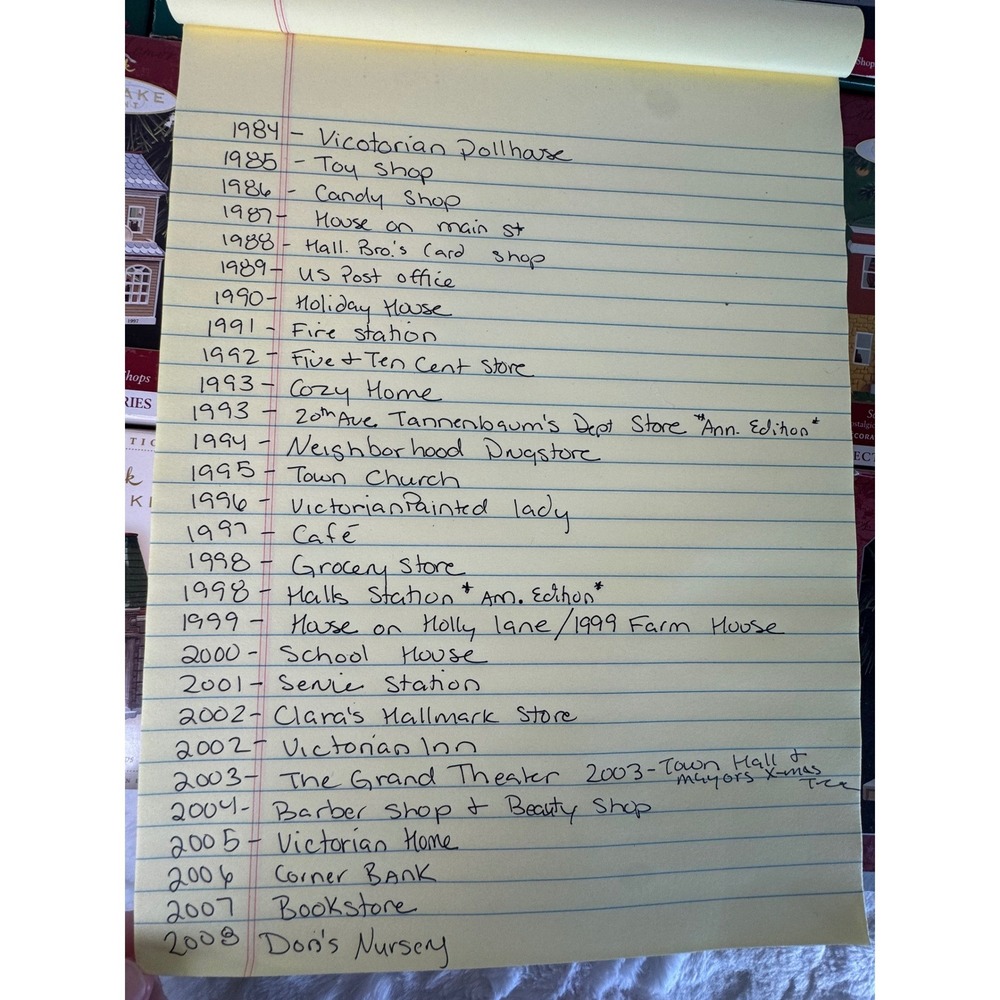 1984 - Vicotorian Dollhouse
1985 - Toy shop
1986 - Candy Shop
1987 - House on main st
1988 - Hall. Bro.'s Card shop
1989 - US Post office
1990 - Holiday House
1991 - Fire station
1992 - Five + Ten Cent Store
1993 - Cozy Home
1993 - 20th Ave Tannenbaum's Dept Store *Ann. Edition*
1994 - Neighborhood Drugstore
1995 - Town Church
1996 - Victorian Painted lady
1997 - Café
1998 - Grocery Store
1998 - Halls Station *Ann. Edition*
1999 - House on Holly lane/1999 Farm House
2000 - School House
2001 - Servie Station
2002 - Clara's Hallmark Store
2002 - Victorian Inn
2003 - The Grand Theater 2003 - Town Hall + mayors X-mas Tree
2004 - Barber Shop + Beauty Shop
2005 - Victorian Home
2006 Corner BANK
2007 Bookstore
2008 Dori's Nursery
AKE
1997
hops
RIES
Shop